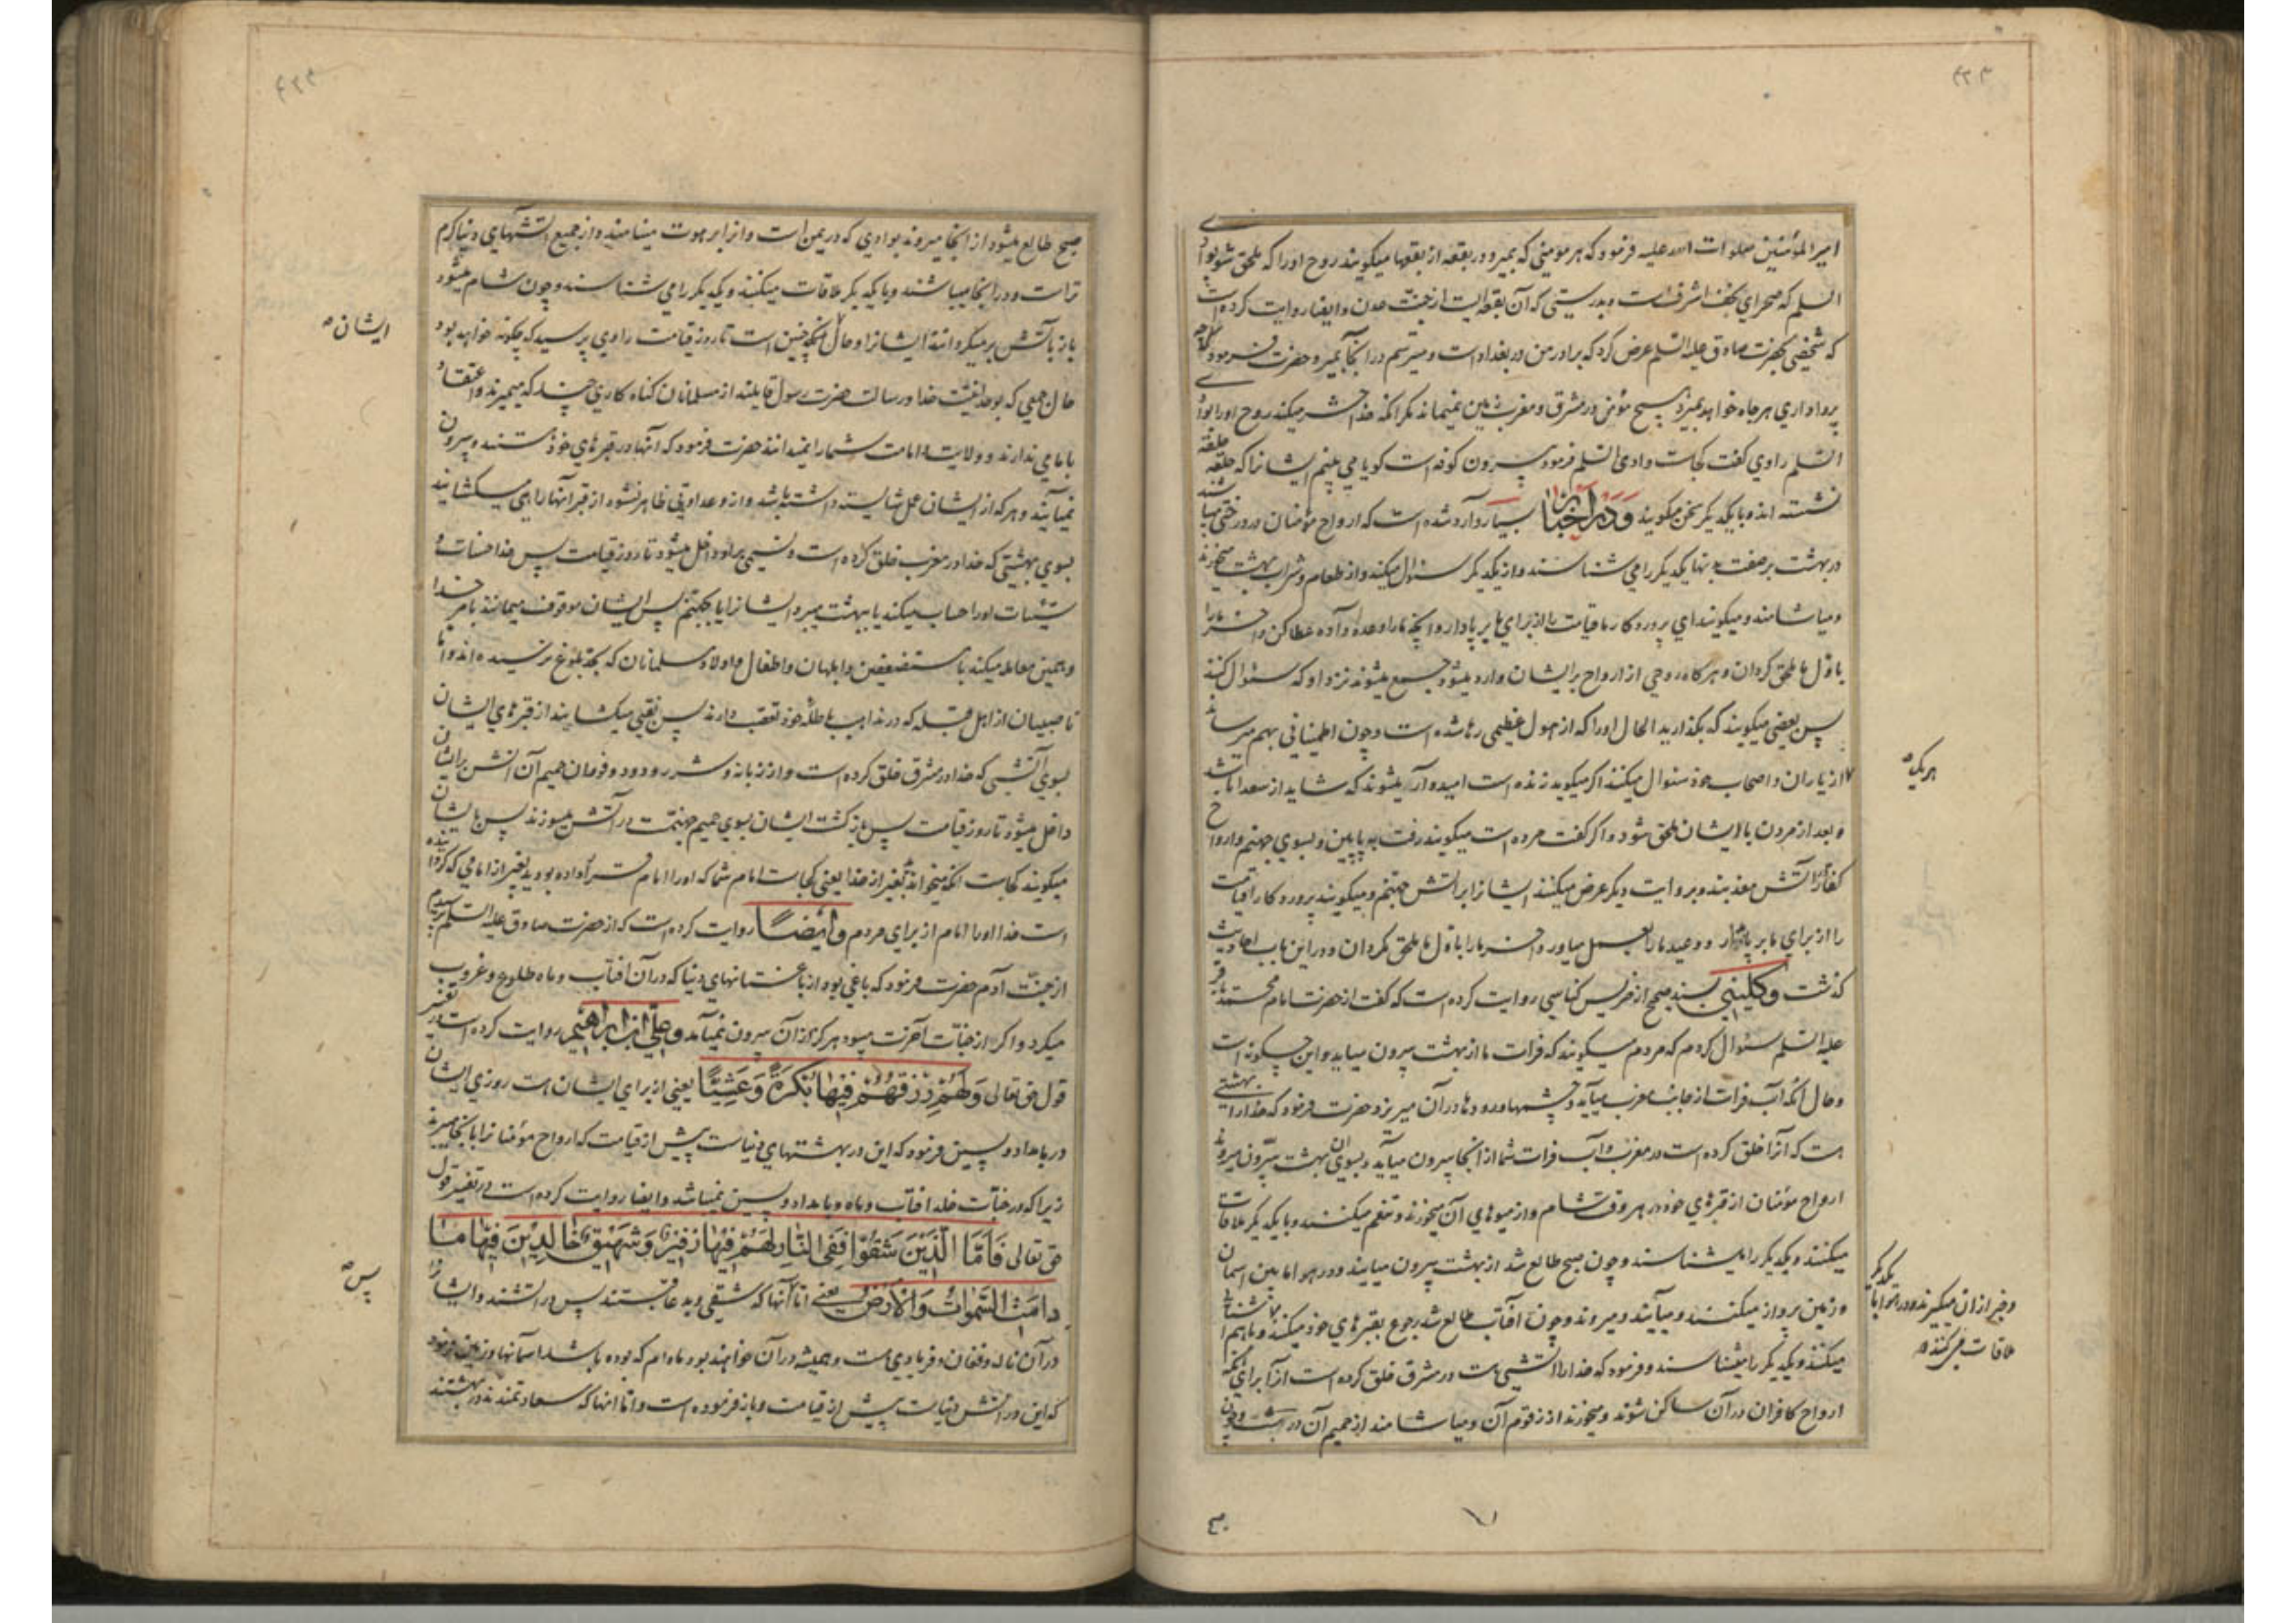 امیر المؤمنین صلوات الله علیه فرمود که هر مومنی که بمیرد در بقعه از بقعها میگویند روح او را که ملحق شو بوادی
السلم که صحرای نجف اشرف است و بدرستی که آن بقعه ایست از جنت عدن و ایضا روایت کرده است
که شخصی بحضرت صادق علیه السلم عرض کرد که برادر من در بغداد است و میترسم در انجا بمیرد حضرت فرمود که چه
پروا داری هر جا خواهد بمیرد هیچ مؤمنی در مشرق و مغرب زمین نمیماند مگر انکه خدا حشر میکند روح او را بوادی
السلم راوی گفت کجاست وادی السلم فرمود بیرون کوفه است گویا می بینم ایشانرا که حلقه حلقه
نشسته اند و با یکدیگر سخن میگویند وَدَر اَخبار بسیار وارد شده است که ارواح مؤمنان در درختی میباشند
در بهشت بر صفت بدنها یکدیگر را می شناسند و از یکدیگر سئوال میکنند و از طعام و شراب بهشت میخورند
و میاشامند و میگویند ای پروردگار ما قیامت را از برای ما بر پا دار و انچه ما را وعده داده عطا کن و اخر ما را
باول ما ملحق گردان و هر گاه روحی از ارواح بر ایشان وارد میشود جمع میشوند نزد او که سئوال کنند
پس بعضی میگویند که بگذارید الحال او را که از هول عظیمی رها شده است و چون اطمینانی بهم رساند
هر یک
از یاران و اصحاب خود سئوال میکنند اگر میگوید زنده است امیدوار میشوند که شاید از سعدا باشد
و بعد از مردن با ایشان ملحق شود و اگر گفت مرده است میگویند رفت به پایین و بسوی جهنم و ارواح
کفار در اتش معذبند و بروایت دیگر عرض میکنند ایشانرا بر اتش جهنم و میگویند پروردگارا قیامت
را از برای ما بر پا مدار و وعید ما را بعمل میاور و اخر ما را باول ما ملحق مگردان و در این باب احادیث
گذشت وَکلینی بسند صحیح از ضریس کناسی روایت کرده است که گفت از حضرت امام محمد باقر
علیه السلم سئوال کردم که مردم میگویند که فرات ما از بهشت بیرون میاید و این چگونه است
و حال انکه آب فرات از جانب مغرب میآید و چشمها و رودها در آن میریزد حضرت فرمود که خدا را بهشتی
هست که آنرا خلق کرده است در مغرب و آب فرات شما از انجا بیرون میآید و بسوی ان بهشت بیرون میروند
ارواح مؤمنان از قبرهای خود در هر وقت شام و از میوهای آن میخورند و تنعم میکنند و با یکدیگر ملاقات
میکنند و یکدیگر را میشناسند و چون صبح طالع شد از بهشت بیرون میایند و در هوا مابین اسمان
و زمین پرواز میکنند و میآیند و میروند و چون آفتاب طالع شد رجوع بقبرهای خود میکنند
و خبر ازان میگیرند و در هوا با یکدیگر
ملاقات می کنند
میکنند و یکدیگر را میشناسند و فرمود که خدا را اتشی هست در مشرق خلق کرده است آنرا برای انکه
ارواح کافران در آن ساکن شوند و میخورند از زقوم آن و میاشامند از حمیم آن در شب و چون
صبح طالع میشود از انجا میروند بوادی که در یمن است و انرا برهوت مینامند و از جمیع اتشهای دنیا گرم
تر است و در انجا میباشند و با یکدیگر ملاقات میکنند و یکدیگر را می شناسند و چون شام میشود
باز باتش بر میگردانند ایشانرا و حال ایشان چنین است تا روز قیامت راوی پرسید که چگونه خواهد بود
ایشان
حال جمعی که بوحدانیت خدا و رسالت حضرت رسول قایلند از مسلمانان گناه کاری چند که میمیرند و اعتقاد
بامامی ندارند و ولایت و امامت شما را نمیدانند حضرت فرمود که آنها در قبرهای خود هستند و بیرون
نمیآیند و هر که از ایشان عمل شایسته داشته باشد و ازو عداوتی ظاهر نشود از قبر آنها راهی میگشایند
بسوی بهشتی که خدا در مغرب خلق کرده است و نسیمی بر او داخل میشود تا روز قیامت پس خدا حسنات و
سیئات او را حساب میکند یا ببهشت میبرد ایشانرا یا بجهنم پس ایشان موقوف میمانند بامر خدا
و همین معامله میکند با مستضعفین و ابلهان و اطفال و اولاد مسلمانان که بحد بلوغ نرسیده اند و اما
ناصبیان از اهل قبله که در مذاهب باطله خود تعصب دارند پس نقبی میگشایند از قبرهای ایشان
بسوی آتشی که خدا در مشرق خلق کرده است و از زبانه و شرر و دود و فوران حمیم آن اتش بر ایشان
داخل میشود تا روز قیامت پس باز گشت ایشان بسوی حمیم جهنمست در آتش میسوزند پس با ایشان
میگویند کجاست انکه میخواندید بغیر از خدا یعنی کجاست امام شما که او را امام قرار داده بودید بغیر از امامی که گردانیده
است خدا او را امام از برای مردم وَایضاً روایت کرده است که از حضرت صادق علیه السلم پرسیدم
از جنت آدم حضرت فرمود که باغی بود از باغستانهای دنیا که در آن افتاب و ماه طلوع و غروب
میکرد و اگر از جنات آخرت میبود هرگز از آن بیرون نمیآمد وَعلی ابن ابراهیم روایت کرده است در تفسیر
قول حق تعالی وَلَهُمْ رِزْقُهُمْ فِیهَا بُكْرَةً وَعَشِیًّا یعنی از برای ایشان هست روزی ایشان
در بامداد و پسین فرمود که این در بهشتهای دنیاست پیش از قیامت که ارواح مؤمنانرا بانجا میبرند
زیرا که در جنات خلد افتاب و ماه و بامداد و پسین نمیباشد و ایضا روایت کرده است در تفسیر قول
حق تعالی فَاَمَّا الَّذِیْنَ شَقُوْا فَفِی النَّارِ لَهُمْ فِیْهَا زَفِیْرٌ وَشَهِیْقٌ خَالِدِیْنَ فِیْهَا مَا
دَامَتِ السَّمٰوَاتُ وَالْاَرْضُ یعنی اما آنها که شقی و بد عاقبتند پس در اتشند و ایشانرا
پس
در آن ناله و فغان و فریادی هست و همیشه در آن خواهند بود مادام که بوده باشد اسمانها و زمین فرمود
که این در اتش دنیاست پیش از قیامت و باز فرموده است و اما انها که سعادتمندند در بهشتند